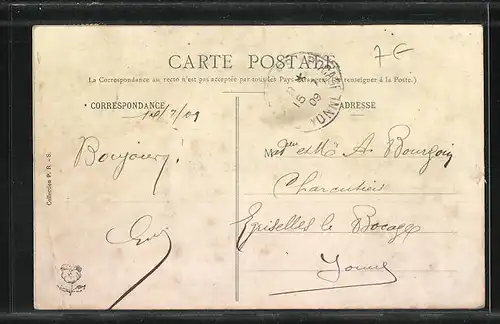 7€
CARTE POSTALE
(La Correspondance au recto n'est pas acceptée par tous les Pays étrangers. (Se renseigner à la Poste.)
CORRESPONDANCE
ADRESSE
14/7/09
YONNE
15 7
09
Bonjour!
M et Mr A. Bourgoin
Charcutier
Egriselles le Bocage
Yonne
Collection P. R. - S.